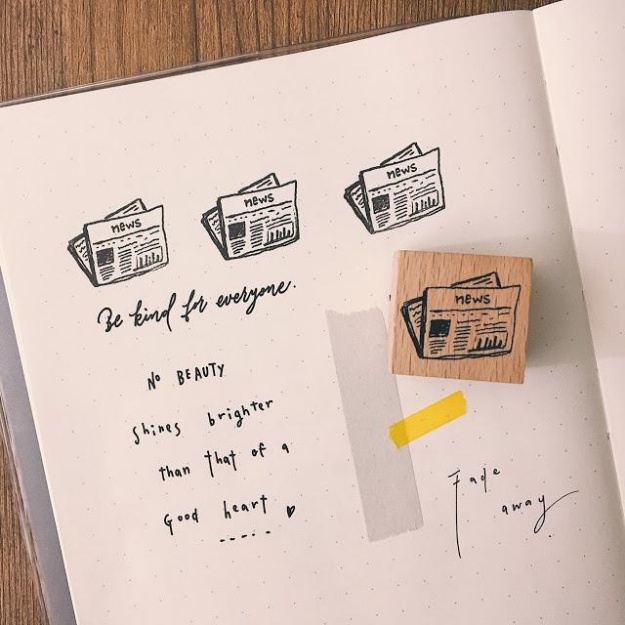 news
news
news
news
Be kind for everyone.
No BEAUTY
shines brighter
than that of a
Good heart
Fade
away